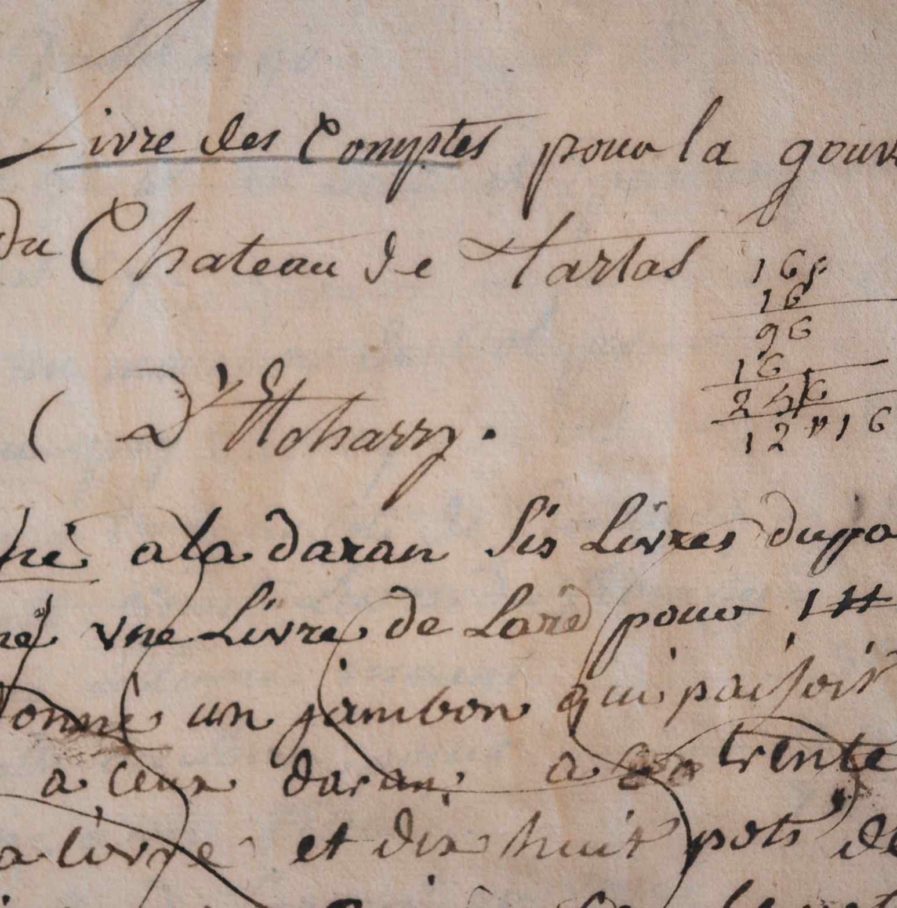 Livre des Comptes pour la gouv
du Chateau de Tartas
16
16
96
16
256
12 16
( D'Etcharry.
né a la daran Six Livres du
né vne Livre de Lard pour 1 ₶
donné un jambon qui paisoit
a ceux daran a trente
et dix huit pots de